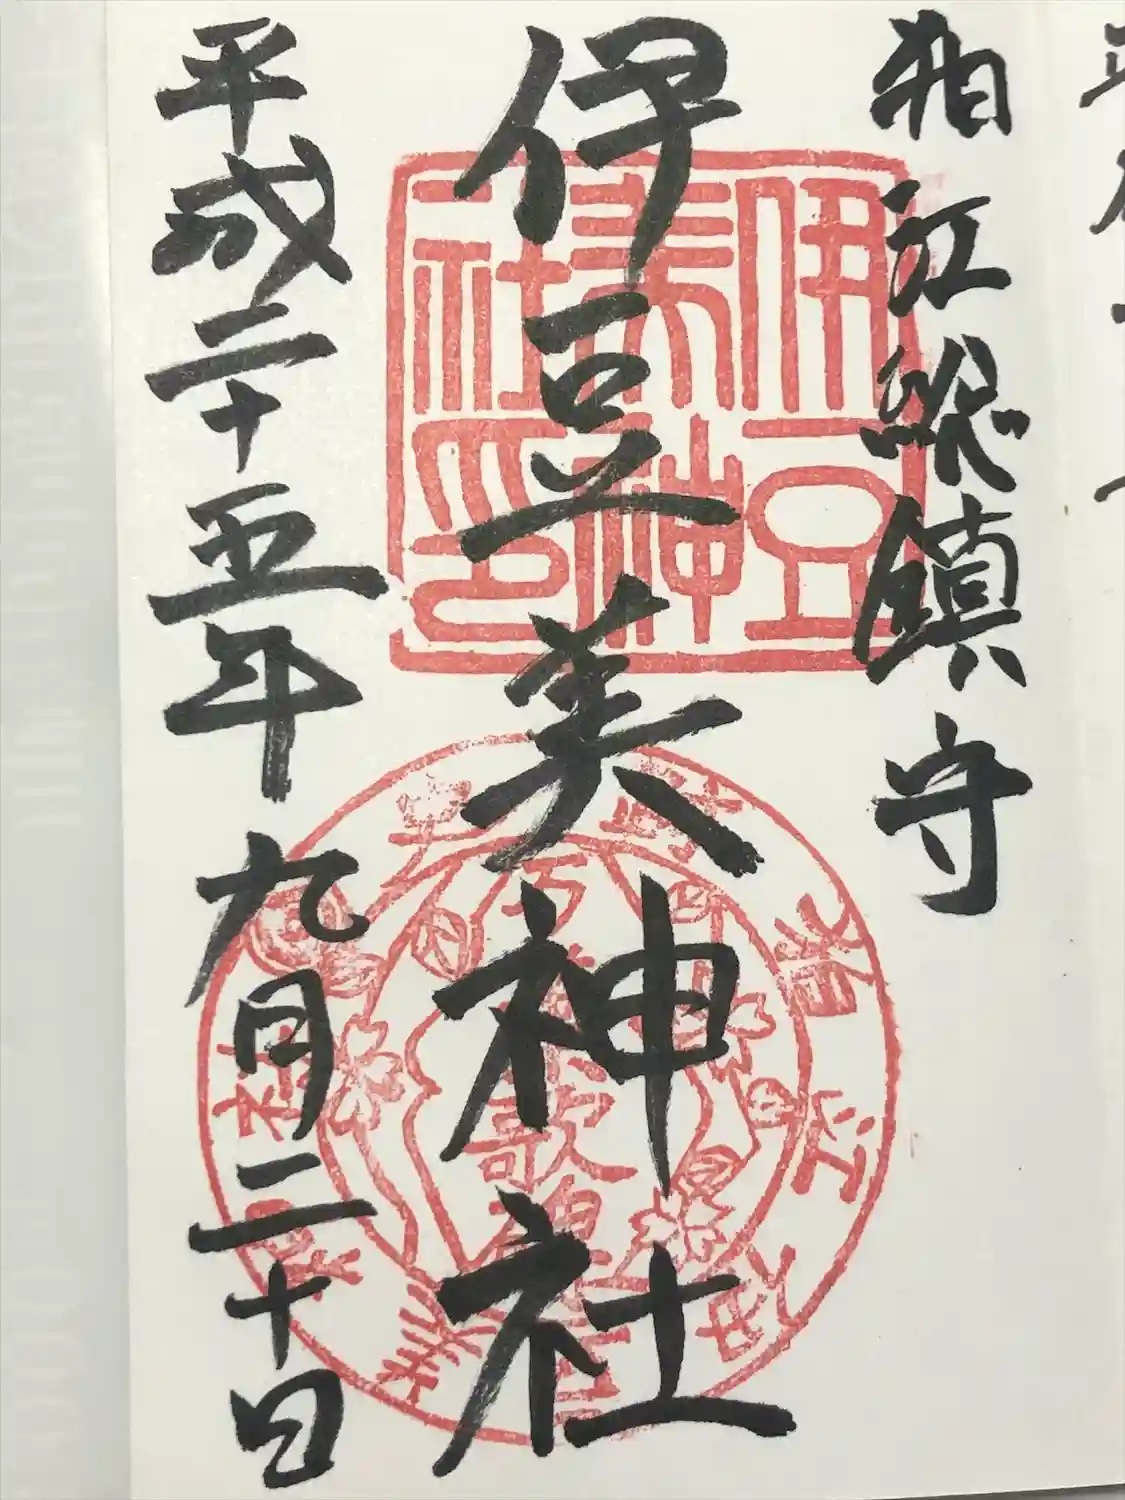 狛江総鎮守
伊豆美神社
平成二十五年九月二十日
伊豆
美神
社印